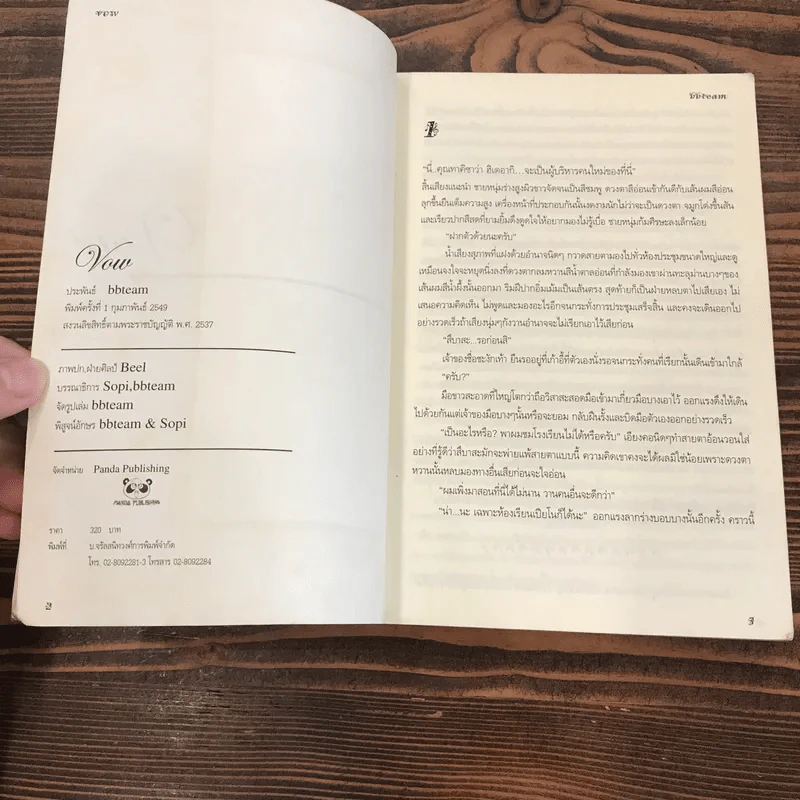 vow
Vow
ประพันธ์ bbteam
พิมพ์ครั้งที่ 1 กุมภาพันธ์ 2549
สงวนลิขสิทธิ์ตามพระราชบัญญัติ พ.ศ. 2537
ภาพปก,ฝ่ายศิลป์ Beel
บรรณาธิการ Sopi,bbteam
จัดรูปเล่ม bbteam
พิสูจน์อักษร bbteam & Sopi
จัดจำหน่าย Panda Publishing
PANDA PUBLISHING
ราคา 320 บาท
พิมพ์ที่ บ.จรัลสนิทวงศ์การพิมพ์จำกัด
โทร. 02-8092281-3 โทรสาร 02-8092284
2
bbteam
1
"นี่..คุณทาคิซาว่า ฮิเดอากิ...จะเป็นผู้บริหารคนใหม่ของที่นี่"
สิ้นเสียงแนะนำ ชายหนุ่มร่างสูงผิวขาวจัดจนเป็นสีชมพู ดวงตาสีอ่อนเข้ากันดีกับเส้นผมสีอ่อน
ลุกขึ้นยืนเต็มความสูง เครื่องหน้าที่ประกอบกันนั้นงดงามนักไม่ว่าจะเป็นดวงตา จมูกโด่งขึ้นสัน
และเรียวปากสีสดที่ยามยิ้มดึงดูดใจให้อยากมองไม่รู้เบื่อ ชายหนุ่มก้มศีรษะลงเล็กน้อย
"ฝากตัวด้วยนะครับ"
น้ำเสียงสุภาพที่แฝงด้วยอำนาจนิดๆ กวาดสายตามองไปทั่วห้องประชุมขนาดใหญ่และดู
เหมือนจงใจจะหยุดนิ่งลงที่ดวงตากลมหวานสีน้ำตาลอ่อนที่กำลังมองเขาผ่านทะลุม่านบางๆของ
เส้นผมสีน้ำผึ้งนั้นออกมา ริมฝีปากอิ่มเม้มเป็นเส้นตรง สุดท้ายก็เป็นฝ่ายหลบตาไปเสียเอง ไม่
เสนอความคิดเห็น ไม่พูดและมองอะไรอีกจนกระทั่งการประชุมเสร็จสิ้น และคงจะเดินออกไป
อย่างรวดเร็วถ้าเสียงนุ่มๆกังวานอำนาจจะไม่เรียกเอาไว้เสียก่อน
"สึบาสะ...รอก่อนสิ"
เจ้าของชื่อชะงักเท้า ยืนรออยู่ที่เก้าอี้ที่ตัวเองนั่งรอจนกระทั่งคนที่เรียกนั้นเดินเข้ามาใกล้
"ครับ?"
มือขาวสะอาดที่ใหญ่โตกว่าถือวิสาสะสอดมือเข้ามาเกี่ยวมือบางเอาไว้ ออกแรงดึงให้เดิน
ไปด้วยกันแต่เจ้าของมือบางๆนั้นหรือจะยอม กลับฝืนรั้งและบิดมือตัวเองออกอย่างรวดเร็ว
"เป็นอะไรหรือ? พาผมชมโรงเรียนไม่ได้หรือครับ" เอียงคอนิดๆทำสายตาอ้อนวอนใส่
อย่างที่รู้ดีว่าสึบาสะมักจะพ่ายแพ้สายตาแบบนี้ ความคิดเขาคงจะได้ผลมิใช่น้อยเพราะดวงตา
หวานนั้นหลบมองทางอื่นเสียก่อนจะใจอ่อน
"ผมเพิ่งมาสอนที่นี่ได้ไม่นาน วานคนอื่นจะดีกว่า"
"น่า...นะ เฉพาะห้องเรียนเปียโนก็ได้นะ" ออกแรงลากร่างบอบบางนั้นอีกครั้ง คราวนี้
3